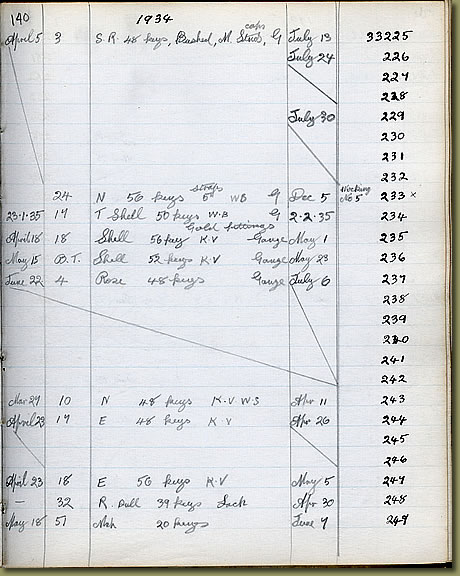 140 1934
caps
April 5 3 S.R. 48 keys, Bushed, M. G July 13 33225
July 24 226
227
228
July 30 229
230
231
232
straps Wocking
24 N 56 keys 5" WB G Dec 5 No 5 233 x
23-1-35 19 T Shell 50 keys W.B G 2-2-35 234
Gold fittings
April 18 18 Shell 56 key K.V Gauge May 1 235
May 15 O.T. Shell 52 keys K V Gauge May 23 236
June 22 4 Rose 48 keys Gauge July 6 237
238
239
240
241
242
Mar 29 10 N 48 keys K-V W-S Apr 11 243
April 23 19 E 48 keys K V Apr 26 244
245
246
April 23 18 E 56 keys K-V May 5 247
— 32 R. Dull 39 keys Jack Apr 30 248
May 18 51 Mah 20 keys June 7 249